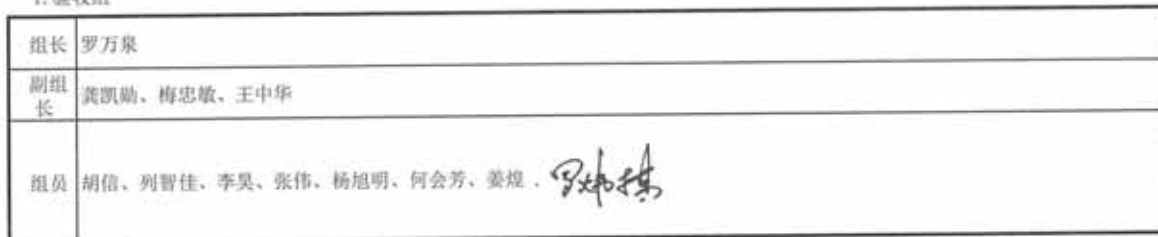 组长 罗万泉
副组长 龚凯勋、梅忠敏、王中华
组员 胡信、列智佳、李昊、张伟、杨旭明、何会芳、姜煌